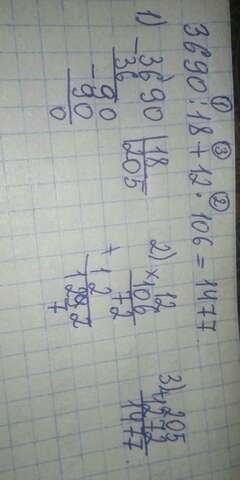 ① ③ ②
3690:18+12·106=1477
1) 3690 | 18
- 36 | 205
90
- 90
0
2) × 12
106
72
+ 12
1272
3) + 205
1272
1477